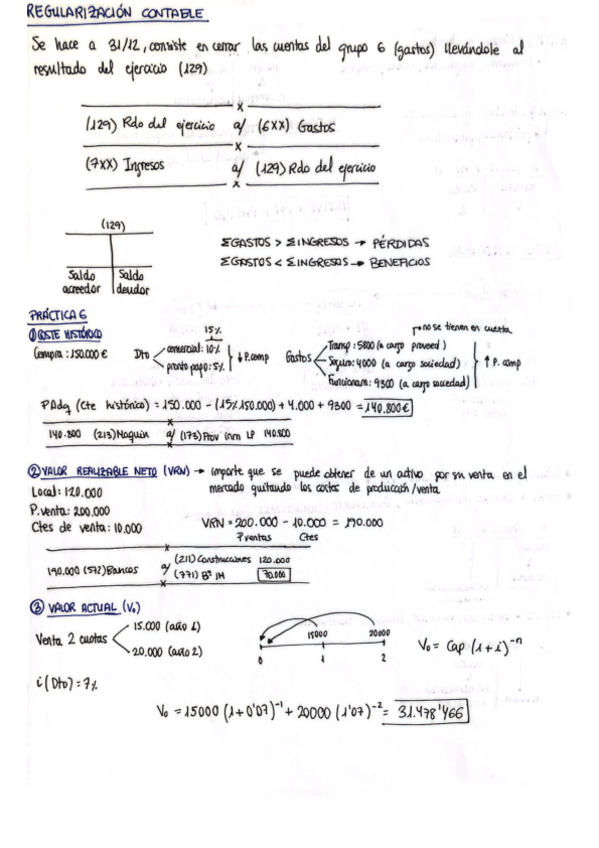 REGULARIZACIÓN CONTABLE
Se hace a 31/12, consiste en cerrar las cuentas del grupo 6 (gastos) llevándole al
resultado del ejercicio (129)
x
(129) Rdo del ejercicio a/ (6XX) Gastos
x
(7XX) Ingresos a/ (129) Rdo del ejercicio
x
(129)
Saldo acreedor Saldo deudor
ΣGASTOS > ΣINGRESOS → PÉRDIDAS
ΣGASTOS < ΣINGRESOS → BENEFICIOS
PRÁCTICA 6
① COSTE HISTÓRICO
Compra: 150.000 €
Dto
15%
comercial: 10%
pronto pago: 5%
↓ P. comp
Gastos
Transp: 5800 (a cargo proveed) → no se tienen en cuenta
Seguro: 4000 (a cargo sociedad)
Funcionam: 9300 (a cargo sociedad)
↑ P. comp
P Adq (Cte histórico) = 150.000 - (15% 150.000) + 4.000 + 9300 = 140.800€
x
140.800 (213) Maquin a/ (173) Prov inm LP 140.800
x
② VALOR REALIZABLE NETO (VRN) → importe que se puede obtener de un activo por su venta en el
mercado quitando los costes de producción/venta.
Local: 120.000
P. venta: 200.000
Ctes de venta: 10.000
VRN = 200.000 - 10.000 = 190.000
P ventas Ctes
x
190.000 (572) Bancos a/ (211) Construcciones 120.000
(771) Bº IM 70.000
x
③ VALOR ACTUAL (V₀)
Venta 2 cuotas
15.000 (año 1)
20.000 (año 2)
15000 20000
0 1 2
V₀ = Cap (1+i)⁻ⁿ
i (Dto) = 7%
V₀ = 15000 (1+0'07)⁻¹ + 20000 (1'07)⁻² = 31.478'466